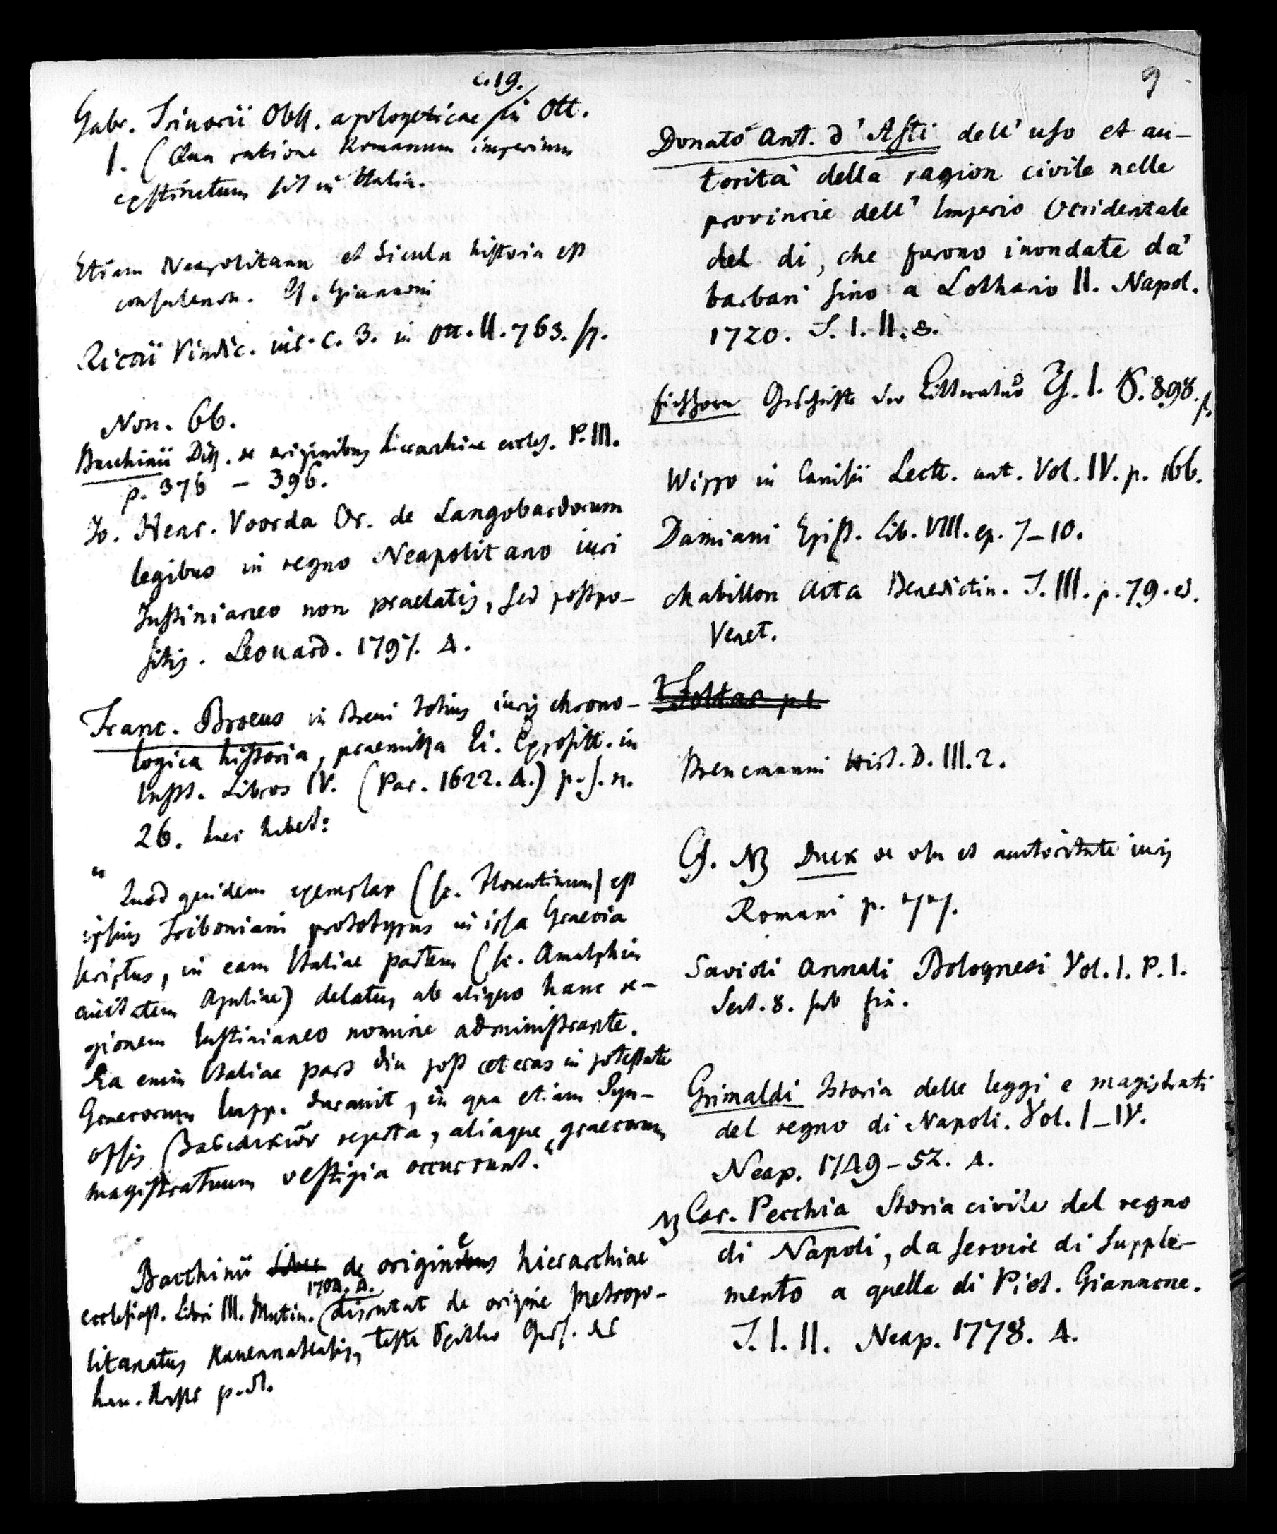 9
c. 19.
Gabr. Trivorii Obss. apologeticae in Ott.
I. (Qua ratione Romanum imperium
exstinctum sit in Italia.
Etiam Neapolitana et Sicula historia est
consulenda. Cf. Giannoni
Riccii Vindic. iur. c. 3. in Ott. II. 763. sq.
Non. 66.
Bacchinii Diss. de originibus hierarchiae eccles. P. III.
p. 376 – 396.
Jo. Henr. Voorda Or. de Langobardorum
legibus in regno Neapolitano iuri
Justinianeo non praelatis, sed postpo-
sitis. Leouard. 1797. 4.
Franc. Broeus in Breui totius iuris chrono-
logica historia, praemissa Ei. Expositt. in
Instt. Libros IV. (Par. 1622. 4.) p. s. n.
26. haec habet:
"Quod quidem exemplar (sc. Florentinum) est
ipsius Triboniani prototypus in ipsa Graecia
scriptus, in eam Italiae partem (sc. Amalphin
ciuitatem Apuliae) delatus ab aliquo hanc re-
gionem Iustinianeo nomine administrante.
Ea enim Italiae pars diu post ceteras in potestate
Graecorum Impp. durauit, in qua etiam Syn-
opsis βασιλικῶν reperta, aliaque graecorum
magistratuum vestigia occurrunt."
Bacchinii de origine hierarchiae
1703. 4.
ecclesiast. Libri III. Mutin. (disputat de origine Metropo-
litanatus Rauennatensis, teste
p.
Donato Ant. d'Asti dell' uso et au-
torità della ragion civile nelle
provincie dell' Imperio Occidentale
del di, che furono inondate da'
barbari sino a Lothario II. Napol.
1720. T. I. II. 8.
Eichhorn Geschichte der Litteratur Th. I. S. 898. f.
Wippo in Canisii Lectt. ant. Vol. IV. p. 166.
Damiani Epist. Lib. VIII. ep. 7–10.
Mabillon Acta Benedictin. T. III. p. 79. ed.
Venet.
Brencmanni Hist. D. III. 2.
Cf. NB Duck de usu et auctoritate iuris
Romani p.
Savioli Annali Bolognesi Vol. I. P. I.
Sect. 8. sub fin.
Grimaldi Istoria delle leggi e magistrati
del regno di Napoli. Vol. I–IV.
Neap. 1749–52. 4.
NB Car. Pecchia Storia civile del regno
di Napoli, da servire di supple-
mento a quella di Piet. Giannone.
T. I. II. Neap. 1778. 4.